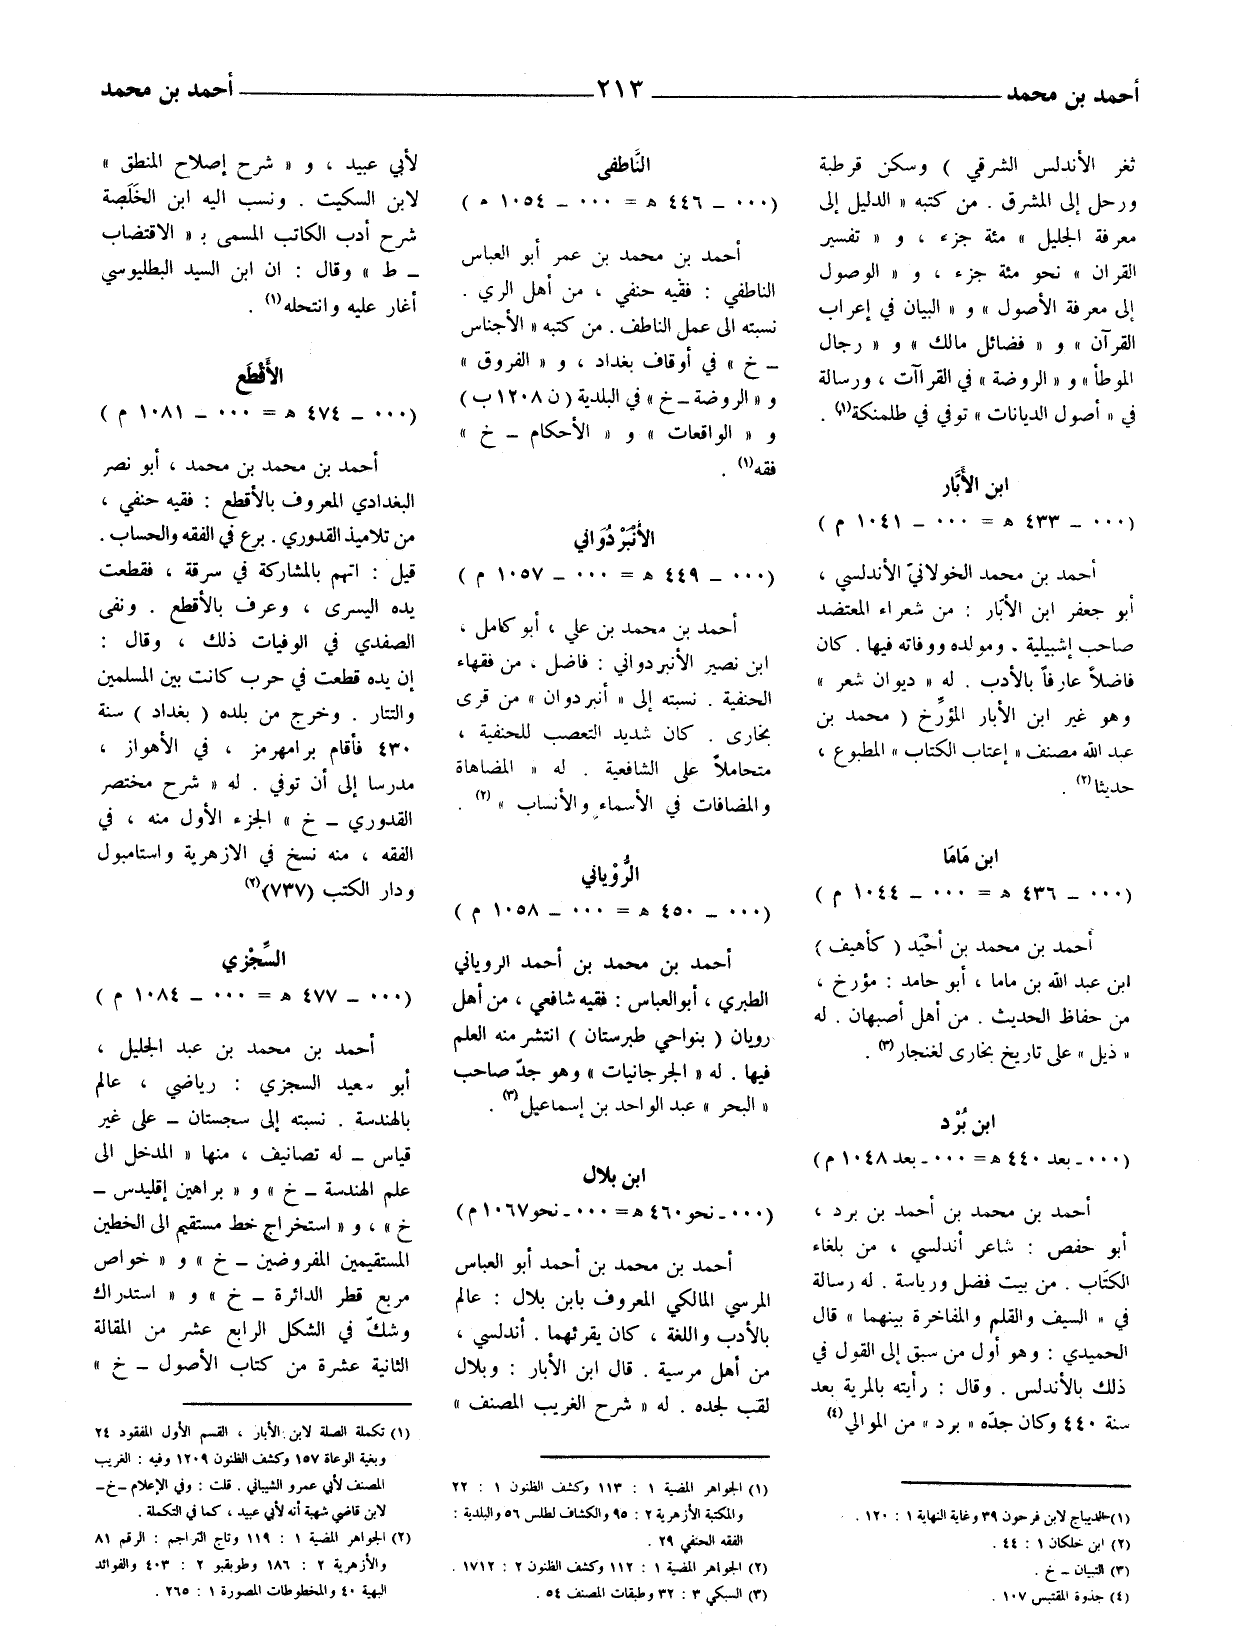 أحمد بن محمد ٢١٣ أحمد بن محمد
ثغر الأندلس الشرقي ) وسكن قرطبة
ورحل إلى المشرق . من كتبه « الدليل إلى
معرفة الجليل » مئة جزء ، و « تفسير
القران » نحو مئة جزء ، و « الوصول
إلى معرفة الأصول » و « البيان في إعراب
القرآن » و « فضائل مالك » و « رجال
الموطأ » و « الروضة » في القراآت ، ورسالة
في « أصول الديانات » توفي في طلمنكة (١) .
ابن الأَبَّار
( ٠٠٠ – ٤٣٣ ه = ٠٠٠ – ١٠٤١ م )
أحمد بن محمد الخولانيّ الأندلسي ،
أبو جعفر ابن الأبّار : من شعراء المعتضد
صاحب إشبيلية . ومولده ووفاته فيها . كان
فاضلاً عارفاً بالأدب . له « ديوان شعر »
وهو غير ابن الأبار المؤرِّخ ( محمد بن
عبد الله مصنف « إعتاب الكتاب » المطبوع ،
حديثا (٢) .
ابن مَامَا
( ٠٠٠ – ٤٣٦ ه = ٠٠٠ – ١٠٤٤ م )
أحمد بن محمد بن أحْيَد ( كأهيف )
ابن عبد الله بن ماما ، أبو حامد : مؤرخ ،
من حفاظ الحديث . من أهل أصبهان . له
« ذيل » على تاريخ بخارى لغنجار (٣) .
ابن بُرْد
( ٠٠٠ - بعد ٤٤٠ ه = ٠٠٠ - بعد ١٠٤٨ م )
أحمد بن محمد بن أحمد بن برد ،
أبو حفص : شاعر أندلسي ، من بلغاء
الكتّاب . من بيت فضل ورياسة . له رسالة
في « السيف والقلم والمفاخرة بينهما » قال
الحميدي : وهو أول من سبق إلى القول في
ذلك بالأندلس . وقال : رأيته بالمرية بعد
سنة ٤٤٠ وكان جدّه « برد » من الموالي (٤)
(١) الديباج لابن فرحون ٣٩ وغاية النهاية ١ : ١٢٠ .
(٢) ابن خلكان ١ : ٤٤ .
(٣) التبيان – خ .
(٤) جذوة المقتبس ١٠٧ .
النَّاطفي
( ٠٠٠ – ٤٤٦ ه = ٠٠٠ – ١٠٥٤ م )
أحمد بن محمد بن عمر أبو العباس
الناطفي : فقيه حنفي ، من أهل الري .
نسبته الى عمل الناطف . من كتبه « الأجناس
– خ » في أوقاف بغداد ، و « الفروق »
و « الروضة – خ » في البلدية ( ن ١٢٠٨ ب )
و « الواقعات » و « الأحكام – خ »
فقه (١) .
الأَنْبَرْدُوَاني
( ٠٠٠ – ٤٤٩ ه = ٠٠٠ – ١٠٥٧ م )
أحمد بن محمد بن علي ، أبو كامل ،
ابن نصير الأنبردواني : فاضل ، من فقهاء
الحنفية . نسبته إلى « أنبردوان » من قرى
بخارى . كان شديد التعصب للحنفية ،
متحاملاً على الشافعية . له « المضاهاة
والمضافات في الأسماء والأنساب » (٢) .
الرُّوْياني
( ٠٠٠ – ٤٥٠ ه = ٠٠٠ – ١٠٥٨ م )
أحمد بن محمد بن أحمد الروياني
الطبري ، أبو العباس : فقيه شافعي ، من أهل
رويان ( بنواحي طبرستان ) انتشر منه العلم
فيها . له « الجرجانيات » وهو جدّ صاحب
« البحر » عبد الواحد بن إسماعيل (٣) .
ابن بلال
( ٠٠٠ - نحو ٤٦٠ ه = ٠٠٠ - نحو ١٠٦٧ م )
أحمد بن محمد بن أحمد أبو العباس
المرسي المالكي المعروف بابن بلال : عالم
بالأدب واللغة ، كان يقرئهما . أندلسي ،
من أهل مرسية . قال ابن الأبار : وبلال
لقب لجده . له « شرح الغريب المصنف »
(١) الجواهر المضية ١ : ١١٣ وكشف الظنون ١ : ٢٢
والمكتبة الأزهرية ٢ : ٩٥ والكشاف لطلس ٥٦ والبلدية :
الفقه الحنفي ٢٩ .
(٢) الجواهر المضية ١ : ١١٢ وكشف الظنون ٢ : ١٧١٢ .
(٣) السبكي ٣ : ٣٢ وطبقات المصنف ٥٤ .
لأبي عبيد ، و « شرح إصلاح المنطق »
لابن السكيت . ونسب اليه ابن الخَلَصة
شرح أدب الكاتب المسمى بـ « الاقتضاب
– ط » وقال : ان ابن السيد البطليوسي
أغار عليه وانتحله (١) .
الأَقْطَع
( ٠٠٠ – ٤٧٤ ه = ٠٠٠ – ١٠٨١ م )
أحمد بن محمد بن محمد ، أبو نصر
البغدادي المعروف بالأقطع : فقيه حنفي ،
من تلاميذ القدوري . برع في الفقه والحساب .
قيل : اتهم بالمشاركة في سرقة ، فقطعت
يده اليسرى ، وعرف بالأقطع . ونفى
الصفدي في الوفيات ذلك ، وقال :
إن يده قطعت في حرب كانت بين المسلمين
والتتار . وخرج من بلده ( بغداد ) سنة
٤٣٠ فأقام برامهرمز ، في الأهواز ،
مدرسا إلى أن توفي . له « شرح مختصر
القدوري – خ » الجزء الأول منه ، في
الفقه ، منه نسخ في الازهرية واستامبول
ودار الكتب (٧٣٧) (٢)
السِّجْزي
( ٠٠٠ – ٤٧٧ ه = ٠٠٠ – ١٠٨٤ م )
أحمد بن محمد بن عبد الجليل ،
أبو سعيد السجزي : رياضي ، عالم
بالهندسة . نسبته إلى سجستان – على غير
قياس – له تصانيف ، منها « المدخل الى
علم الهندسة – خ » و « براهين إقليدس –
خ » ، و « استخراج خط مستقيم الى الخطين
المستقيمين المفروضين – خ » و « خواص
مربع قطر الدائرة – خ » و « استدراك
وشكّ في الشكل الرابع عشر من المقالة
الثانية عشرة من كتاب الأصول – خ »
(١) تكملة الصلة لابن الأبار ، القسم الأول المفقود ٢٤
وبغية الوعاة ١٥٧ وكشف الظنون ١٢٠٩ وفيه : الغريب
المصنف لأبي عمرو الشيباني . قلت : وفي الإعلام – خ –
لابن قاضي شهبة أنه لأبي عبيد ، كما في التكملة .
(٢) الجواهر المضية ١ : ١١٩ وتاج التراجم : الرقم ٨١
والأزهرية ٢ : ١٨٦ وطوبقبو ٢ : ٤٠٣ والفوائد
البهية ٤٠ والمخطوطات المصورة ١ : ٢٦٥ .